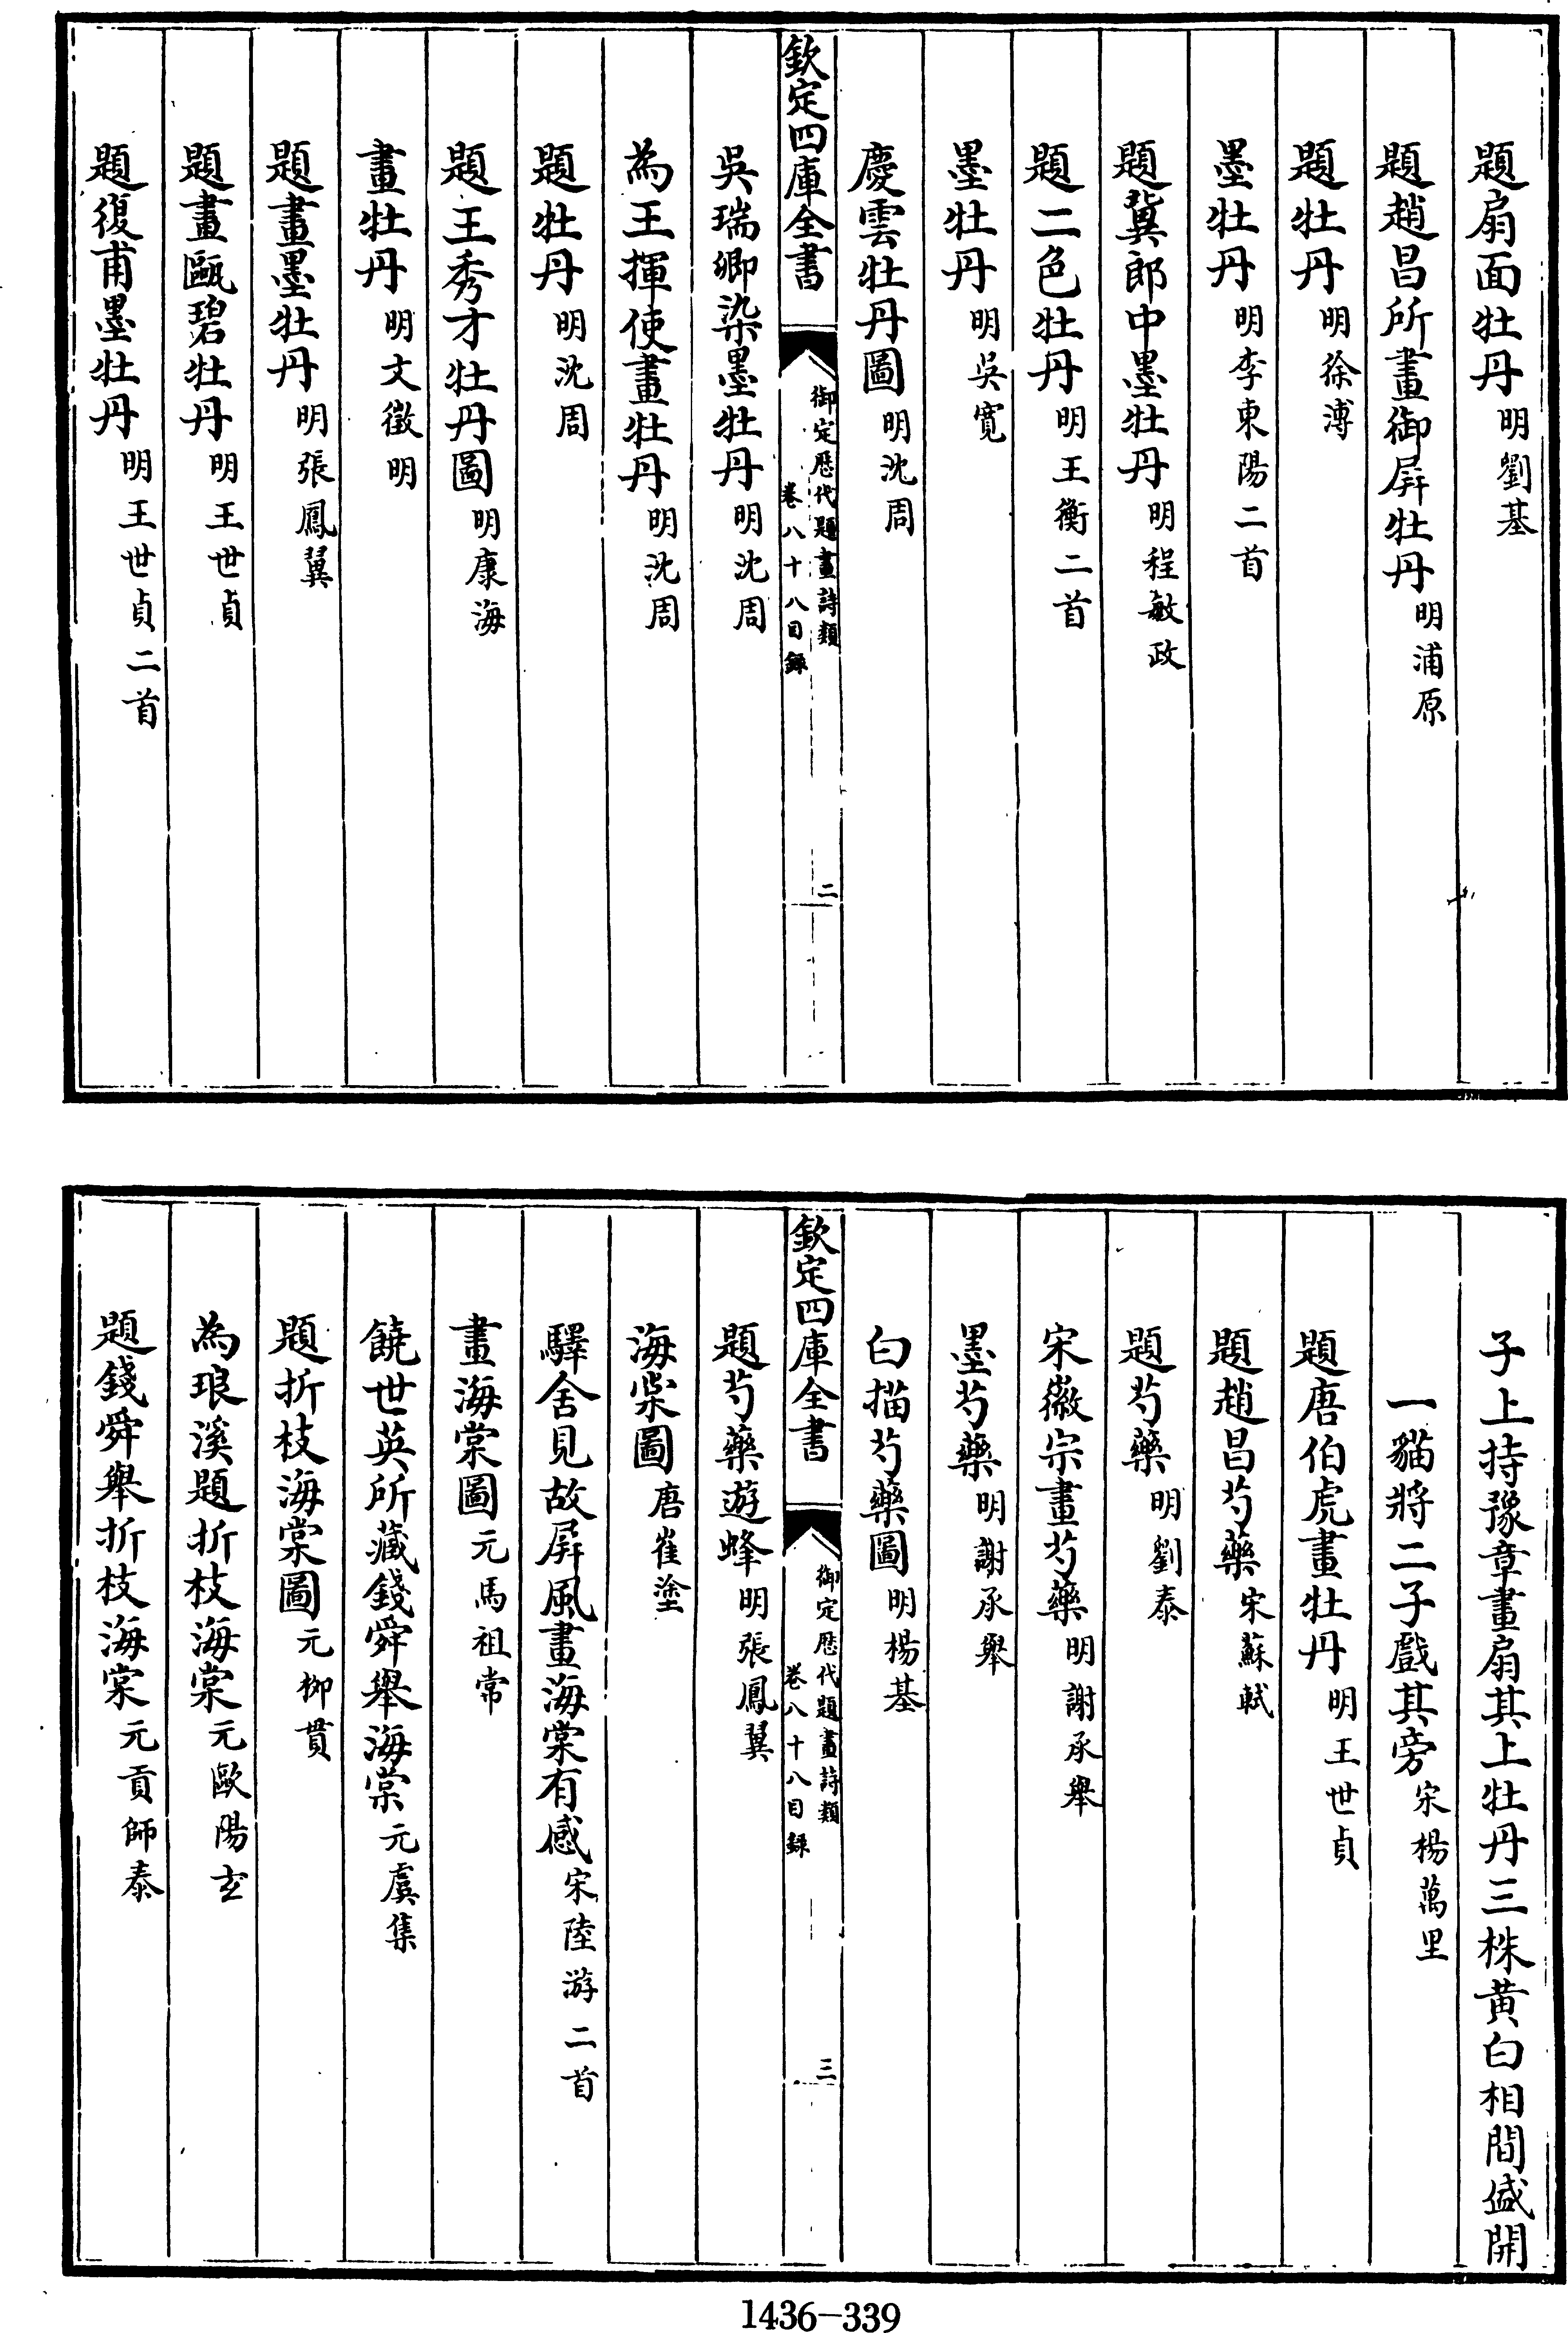 題扇面牡丹明劉基
題趙昌所畫御屏牡丹明浦原
題牡丹明徐溥
墨牡丹明李東陽二首
題冀郎中墨牡丹明程敏政
題二色牡丹明王衡二首
墨牡丹明吳寬
慶雲牡丹圖明沈周
欽定四庫全書
御定歷代題畫詩類
卷八十八目録
二
吳瑞卿染墨牡丹明沈周
為王揮使畫牡丹明沈周
題牡丹明沈周
題王秀才牡丹圖明康海
畫牡丹明文徵明
題畫墨牡丹明張鳳翼
題畫甌碧牡丹明王世貞
題復甫墨牡丹明王世貞二首
子上持豫章畫扇其上牡丹三株黄白相間盛開
一貓將二子戲其旁宋楊萬里
題唐伯虎畫牡丹明王世貞
題趙昌芍藥宋蘇軾
題芍藥明劉泰
宋徽宗畫芍藥明謝承舉
墨芍藥明謝承舉
白描芍藥圖明楊基
欽定四庫全書
御定歷代題畫詩類
卷八十八目録
三
題芍藥遊蜂明張鳳翼
海棠圖唐崔塗
驛舍見故屏風畫海棠有感宋陸游二首
畫海棠圖元馬祖常
饒世英所藏錢舜舉海棠元虞集
題折枝海棠圖元柳貫
為琅溪題折枝海棠元歐陽玄
題錢舜舉折枝海棠元貢師泰
1436-339